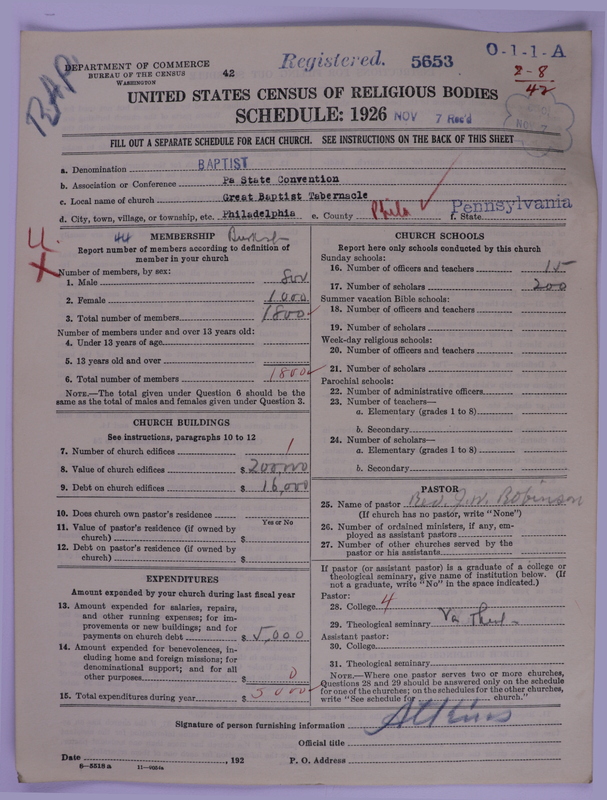 BAP
DEPARTMENT OF COMMERCE
BUREAU OF THE CENSUS
WASHINGTON
42
Registered. 5653
O-1-1-A
2-8
42
UNITED STATES CENSUS OF RELIGIOUS BODIES
SCHEDULE: 1926
NOV 7 Rec'd
FILL OUT A SEPARATE SCHEDULE FOR EACH CHURCH. SEE INSTRUCTIONS ON THE BACK OF THIS SHEET
a. Denomination BAPTIST
b. Association or Conference Pa State Convention
c. Local name of church Great Baptist Tabernacle
d. City, town, village, or township, etc. Philadelphia e. County Phila f. State Pennsylvania
44
MEMBERSHIP
Report number of members according to definition of
member in your church
Number of members, by sex:
1. Male 800
2. Female 1000
3. Total number of members 1800
Number of members under and over 13 years old:
4. Under 13 years of age
5. 13 years old and over
6. Total number of members 1800
NOTE.—The total given under Question 6 should be the
same as the total of males and females given under Question 3.
CHURCH BUILDINGS
See instructions, paragraphs 10 to 12
7. Number of church edifices 1
8. Value of church edifices $200000
9. Debt on church edifices $16,000
10. Does church own pastor's residence
Yes or No
11. Value of pastor's residence (if owned by
church) $
12. Debt on pastor's residence (if owned by
church) $
EXPENDITURES
Amount expended by your church during last fiscal year
13. Amount expended for salaries, repairs,
and other running expenses; for im-
provements or new buildings; and for
payments on church debt $5,000
14. Amount expended for benevolences, in-
cluding home and foreign missions; for
denominational support; and for all
other purposes $0
15. Total expenditures during year $5000
CHURCH SCHOOLS
Report here only schools conducted by this church
Sunday schools:
16. Number of officers and teachers 15
17. Number of scholars 200
Summer vacation Bible schools:
18. Number of officers and teachers
19. Number of scholars
Week-day religious schools:
20. Number of officers and teachers
21. Number of scholars
Parochial schools:
22. Number of administrative officers
23. Number of teachers—
a. Elementary (grades 1 to 8)
b. Secondary
24. Number of scholars—
a. Elementary (grades 1 to 8)
b. Secondary
PASTOR
25. Name of pastor Rev. J. W. Robinson
(If church has no pastor, write "None")
26. Number of ordained ministers, if any, em-
ployed as assistant pastors
27. Number of other churches served by the
pastor or his assistants
If pastor (or assistant pastor) is a graduate of a college or
theological seminary, give name of institution below. (If
not a graduate, write "No" in the space indicated.)
Pastor:
28. College 4
29. Theological seminary Va Theol
Assistant pastor:
30. College
31. Theological seminary
NOTE.—Where one pastor serves two or more churches,
Questions 28 and 29 should be answered only on the schedule
for one of the churches; on the schedules for the other churches,
write "See schedule for church."
Signature of person furnishing information Atkins
Official title
Date , 192 P. O. Address
8-5518a 11-9054a